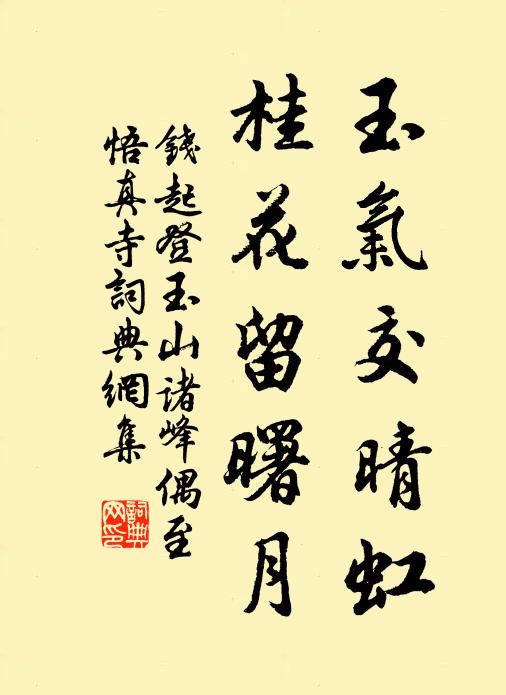 玉氣交晴虹
桂花留曙月
錢起登玉山诸峰偶至
悟真寺詞典網集
詞典
网印